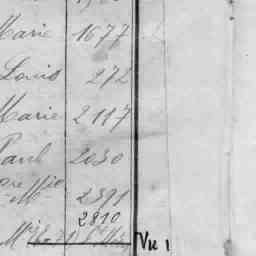 Marie 1677
Louis 272
Marie 2117
Paul 2030
Mie
M 2391
2810
Vu 1